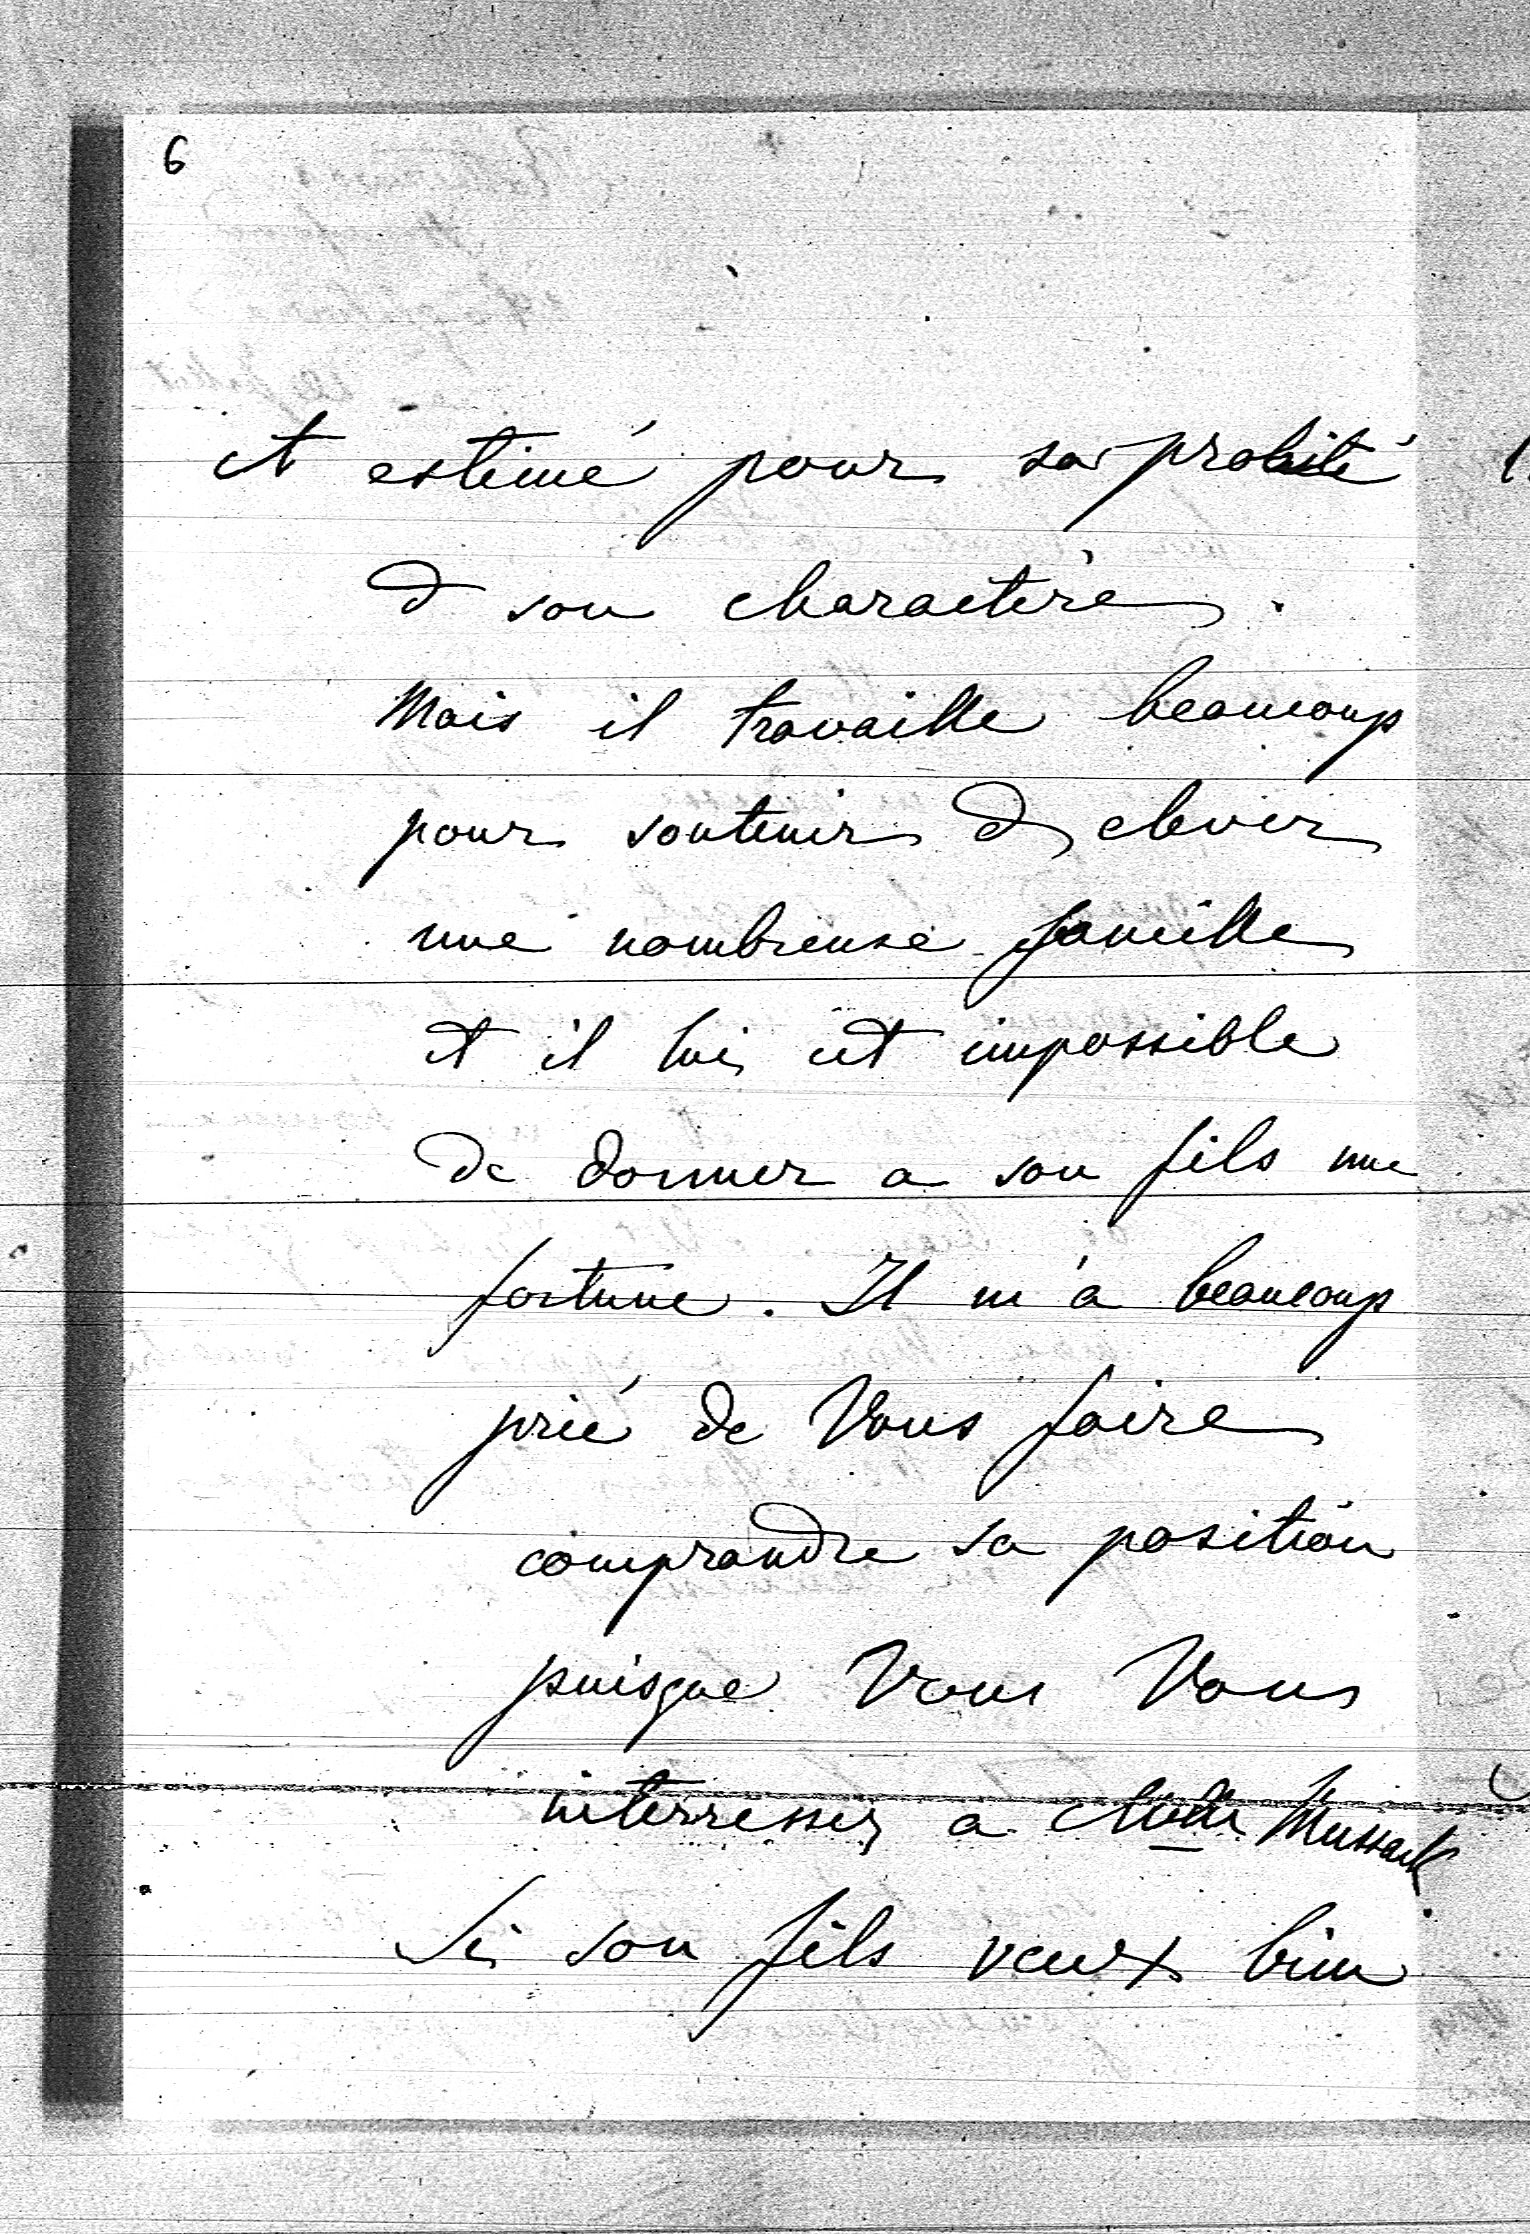 6
et estimé pour sa probité
& son charactére.
Mais il travaille beaucoup
pour soutenir & elever
une nombreuse famille
et il lui est impossible
de donner a son fils une
fortune. Il m'a beaucoup
prié de Vous faire
comprandre sa position
puisque Vous Vous
interressez a Melle
Si son fils veux bien